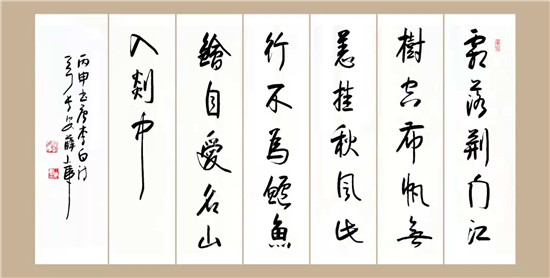 霜落荆门江
樹空布帆無
恙挂秋風此
行不為鱸魚
鱠自愛名山
入剡中
丙申书唐李白诗